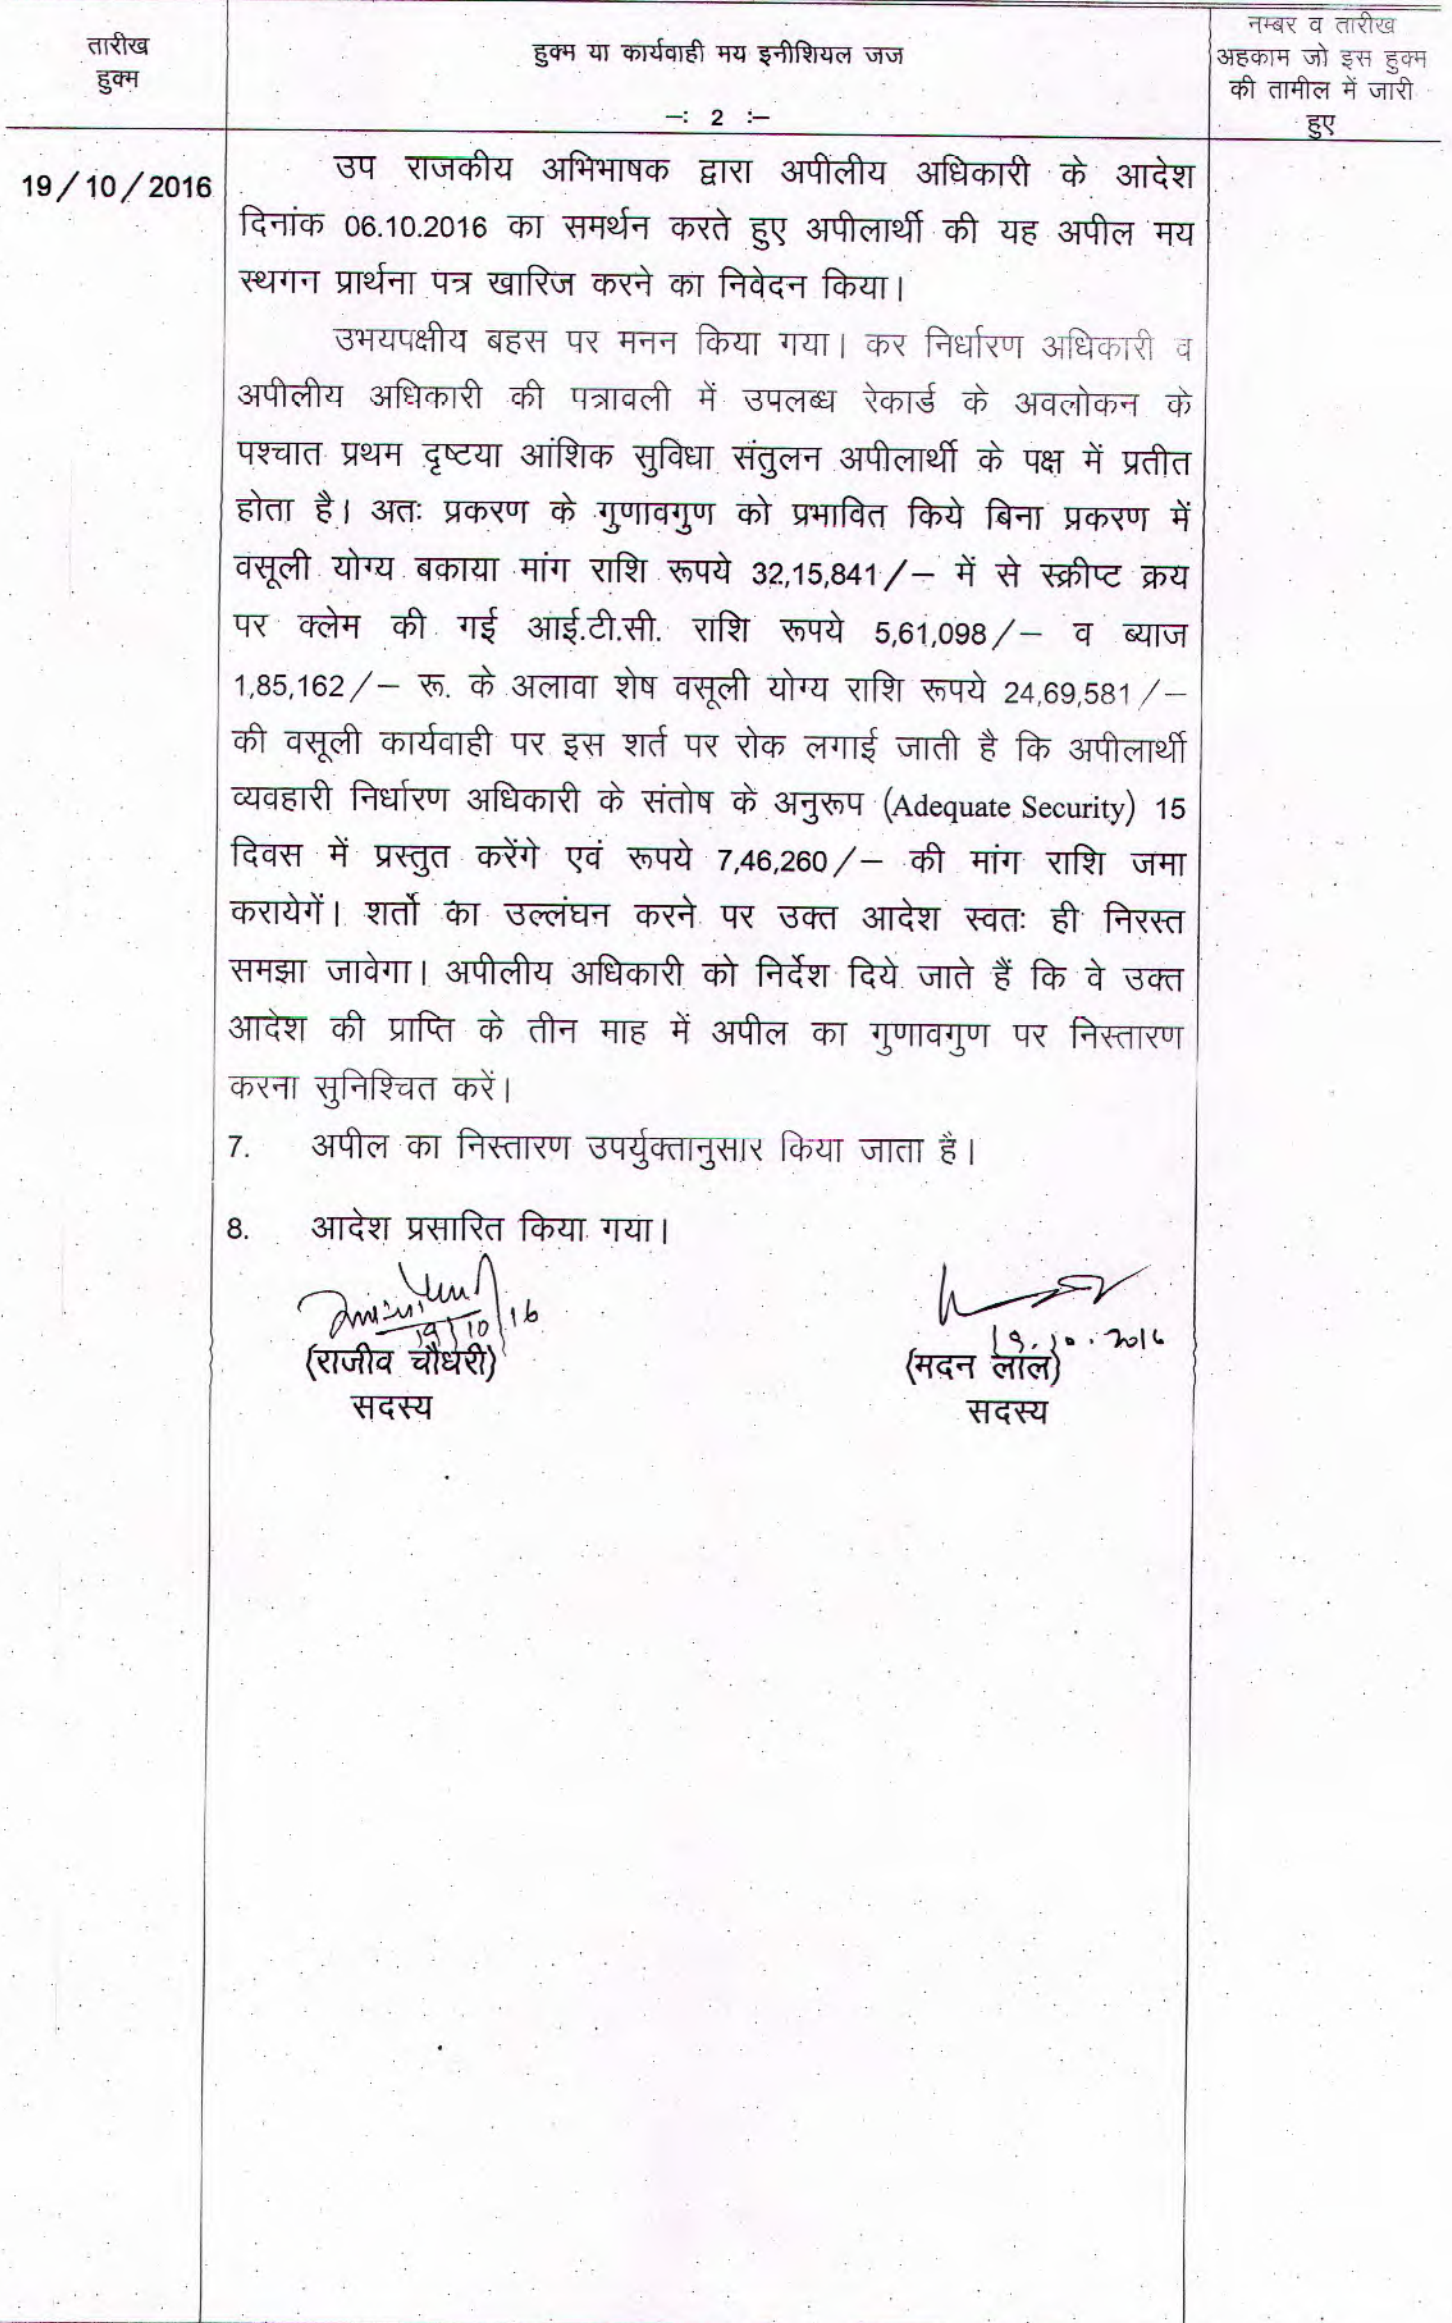 तारीख
हुक्म
हुक्म या कार्यवाही मय इनीशियल जज
–: 2 :–
नम्बर व तारीख
अहकाम जो इस हुक्म
की तामील में जारी
हुए
19/10/2016
उप राजकीय अभिभाषक द्वारा अपीलीय अधिकारी के आदेश
दिनांक 06.10.2016 का समर्थन करते हुए अपीलार्थी की यह अपील मय
स्थगन प्रार्थना पत्र खारिज करने का निवेदन किया।
उभयपक्षीय बहस पर मनन किया गया। कर निर्धारण अधिकारी व
अपीलीय अधिकारी की पत्रावली में उपलब्ध रेकार्ड के अवलोकन के
पश्चात प्रथम दृष्टया आंशिक सुविधा संतुलन अपीलार्थी के पक्ष में प्रतीत
होता है। अतः प्रकरण के गुणावगुण को प्रभावित किये बिना प्रकरण में
वसूली योग्य बकाया मांग राशि रूपये 32,15,841/– में से स्क्रीप्ट क्रय
पर क्लेम की गई आई.टी.सी. राशि रूपये 5,61,098/– व ब्याज
1,85,162/– रू. के अलावा शेष वसूली योग्य राशि रूपये 24,69,581/–
की वसूली कार्यवाही पर इस शर्त पर रोक लगाई जाती है कि अपीलार्थी
व्यवहारी निर्धारण अधिकारी के संतोष के अनुरूप (Adequate Security) 15
दिवस में प्रस्तुत करेंगे एवं रूपये 7,46,260/– की मांग राशि जमा
करायेगें। शर्तो का उल्लंघन करने पर उक्त आदेश स्वतः ही निरस्त
समझा जावेगा। अपीलीय अधिकारी को निर्देश दिये जाते हैं कि वे उक्त
आदेश की प्राप्ति के तीन माह में अपील का गुणावगुण पर निस्तारण
करना सुनिश्चित करें।
7. अपील का निस्तारण उपर्युक्तानुसार किया जाता है।
8. आदेश प्रसारित किया गया।
19/10/16
19.10.2016
(राजीव चौधरी)
(मदन लाल)
सदस्य
सदस्य